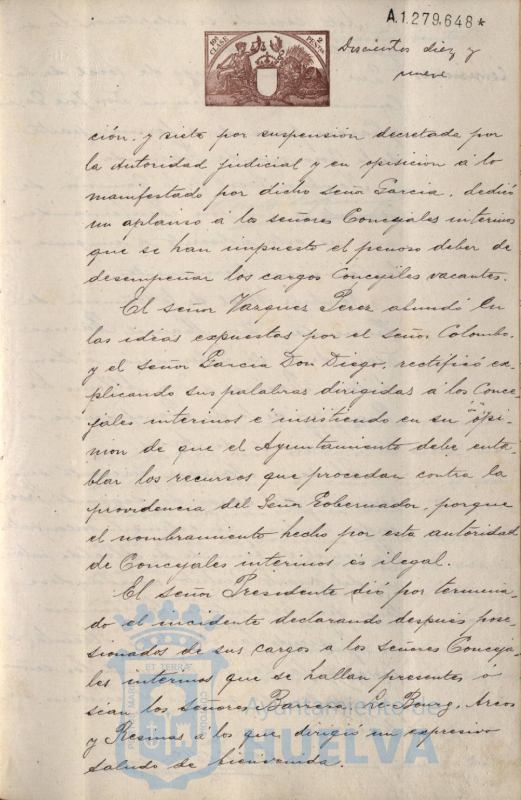 A.1.279.648*
10ª CLASE
2 PENTAS
Discientos diez y
nueve
ción, y siete por suspensión decretada por
la Autoridad judicial y en oposición á lo
manifestado por dicho señor Garcia, dedicó
un aplauso á los señores Concejales interinos
que se han impuesto el penoso deber de
desempeñar los cargos Concejiles vacantes.
El señor Vazquez Perez abundó en
las ideas expuestas por el señor Colombo,
y el señor Garcia Don Diego, rectificó ex-
plicando sus palabras dirigidas á los Conce-
jales interinos é insistiendo en su opi-
nion de que el Ayuntamiento debe enta-
blar los recursos que procedan contra la
providencia del Señor Gobernador, porque
el nombramiento hecho por esta autoridad
de Concejales interinos es ilegal.
El señor Presidente dió por termina-
do el incidente declarando después pose-
sionados de sus cargos a los señores Conceja-
les interinos que se hallan presentes ó
sean los señores Barrera, Le Bourg, Arcos
y Resinas á los que dirigió un expresivo
saludo de bienvenida.
Ayuntamiento de
HUELVA